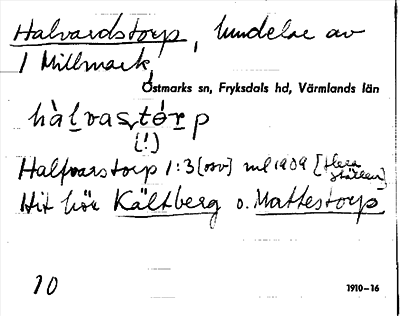 Halvardstorp, lundelar av
1 Millmark,
Östmarks sn, Fryksdals hd, Värmlands län
hàlvastórp
(!)
Halfvarstorp 1:3 [osv] ml 1909 [flera ställen]
Hit hör Kältberg o. Mattestorp
10
1910-16